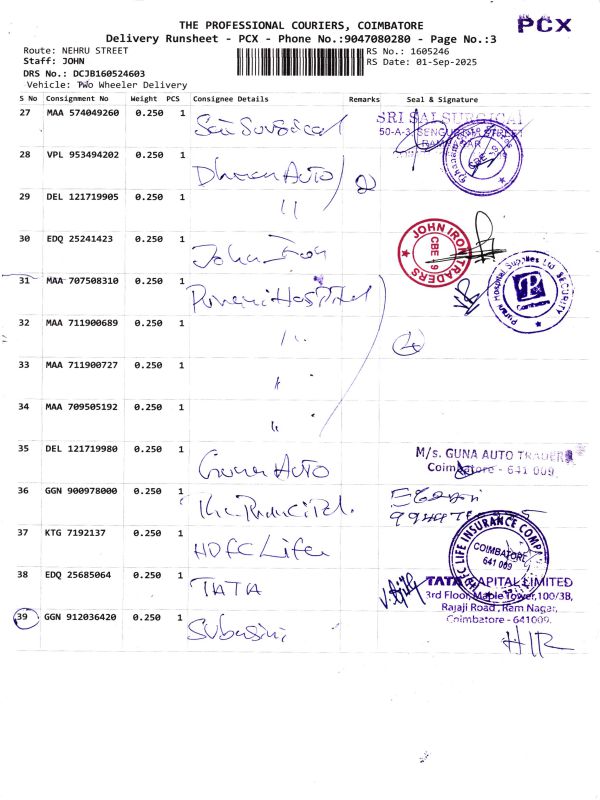 THE PROFESSIONAL COURIERS, COIMBATORE
PCX
Delivery Runsheet - PCX - Phone No.:9047080280 - Page No.:3
Route: NEHRU STREET
RS No.: 1605246
Staff: JOHN
RS Date: 01-Sep-2025
DRS No.: DCJB160524603
Vehicle: Two Wheeler Delivery
S No Consignment No Weight PCS Consignee Details Remarks Seal & Signature
27 MAA 574049260 0.250 1 Sai Surgical SRI SAI SURGICAL
50-A-3, SENGUPTHA STREET
28 VPL 953494202 0.250 1 Dharan Auto 2
29 DEL 121719905 0.250 1 "
30 EDQ 25241423 0.250 1 John Iron JOHN IRON TRADERS CBE 9
31 MAA 707508310 0.250 1 Purani Hospital Purani Hospital Supplies Ltd SECURITY Coimbatore
32 MAA 711900689 0.250 1 " 4
33 MAA 711900727 0.250 1 "
34 MAA 709505192 0.250 1 "
35 DEL 121719980 0.250 1 Guna Auto M/s. GUNA AUTO TRADERS
Coimbatore - 641 009.
36 GGN 900978000 0.250 1
37 KTG 7192137 0.250 1 HDFC Life LIFE INSURANCE COMPANY COIMBATORE 641 009
38 EDQ 25685064 0.250 1 TATA TATA CAPITAL LIMITED
3rd Floor, Maple Tower, 100/3B,
Rajaji Road, Ram Nagar,
Coimbatore - 641009.
39 GGN 912036420 0.250 1 Subasini H/R